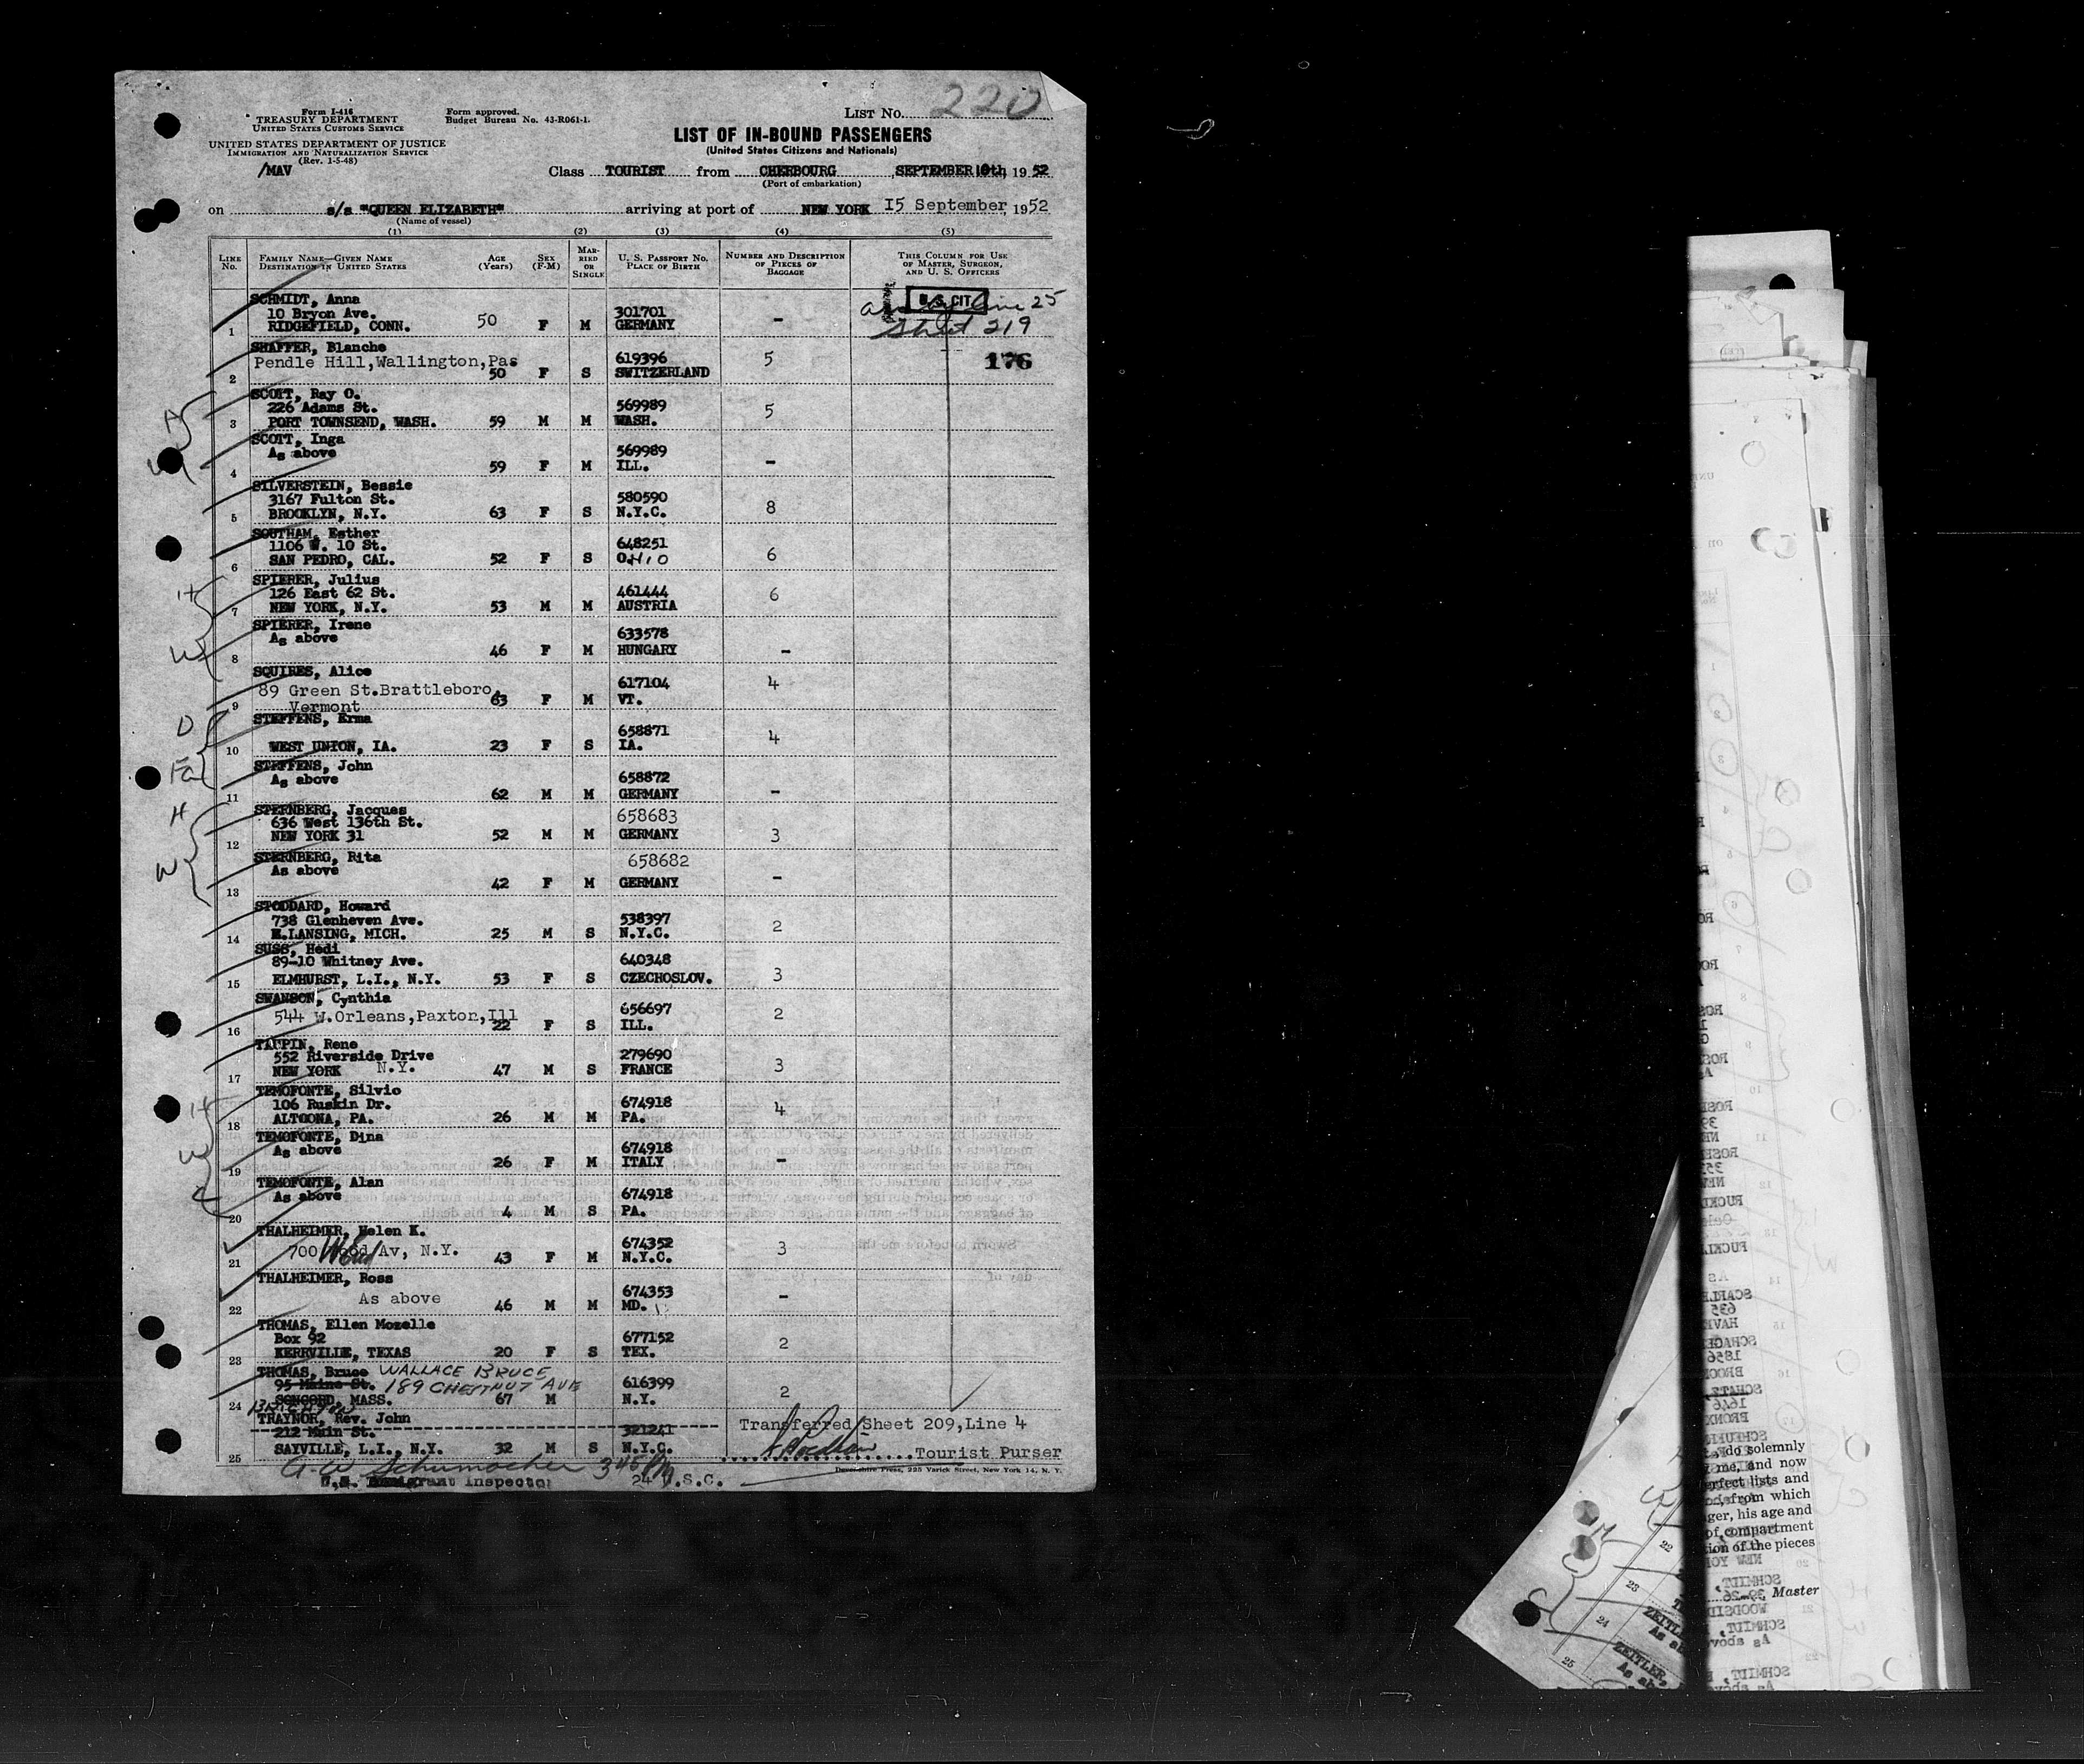 220
Form I-416
TREASURY DEPARTMENT
UNITED STATES CUSTOMS SERVICE
UNITED STATES DEPARTMENT OF JUSTICE
IMMIGRATION AND NATURALIZATION SERVICE
(Rev. 1-5-48)
/MAV
Form approved.
Budget Bureau No. 43-R061-1.
LIST No.
LIST OF IN-BOUND PASSENGERS
(United States Citizens and Nationals)
Class TOURIST from CHERBOURG, SEPTEMBER 10th, 1952
(Port of embarkation)
on s/s "QUEEN ELIZABETH" arriving at port of NEW YORK 15 September, 1952
(Name of vessel)
(1) (2) (3) (4) (5)
LINE No. FAMILY NAME—GIVEN NAME DESTINATION IN UNITED STATES AGE (Years) SEX (F-M) MAR-RIED OR SINGLE U. S. PASSPORT NO. PLACE OF BIRTH NUMBER AND DESCRIPTION OF PIECES OF BAGGAGE THIS COLUMN FOR USE OF MASTER, SURGEON, AND U. S. OFFICERS
SCHMIDT, Anna U.S. CIT. line 25
10 Bryon Ave. 301701
1 RIDGEFIELD, CONN. 50 F M GERMANY - Sheet 219
SHAFFER, Blanche
Pendle Hill,Wallington,Pas 619396 5 176
2 50 F S SWITZERLAND
SCOTT, Ray O.
226 Adams St. 569989 5
3 PORT TOWNSEND, WASH. 59 M M WASH.
SCOTT, Inga
As above 569989
4 59 F M ILL. -
SILVERSTEIN, Bessie
3167 Fulton St. 580590
5 BROOKLYN, N.Y. 63 F S N.Y.C. 8
SOUTHAM, Esther
1106 W. 10 St. 648251
6 SAN PEDRO, CAL. 52 F S OHIO 6
SPIERER, Julius
126 East 62 St. 461444 6
7 NEW YORK, N.Y. 53 M M AUSTRIA
SPIERER, Irene
As above 633578
8 46 F M HUNGARY -
SQUIRES, Alice
89 Green St.Brattleboro, 617104 4
9 Vermont 63 F M VT.
STEFFENS, Erma
658871
10 WEST UNION, IA. 23 F S IA. 4
STEFFENS, John
As above 658872
11 62 M M GERMANY -
STERNBERG, Jacques
636 West 136th St. 658683
12 NEW YORK 31 52 M M GERMANY 3
STERNBERG, Rita
As above 658682
13 42 F M GERMANY -
STODDARD, Howard
738 Glenheven Ave. 538397
14 E.LANSING, MICH. 25 M S N.Y.C. 2
SUSS, Hedi
89-10 Whitney Ave. 640348
15 ELMHURST, L.I., N.Y. 53 F S CZECHOSLOV. 3
SWANSON, Cynthia
544 W.Orleans,Paxton,Ill 656697 2
16 22 F S ILL.
TAUPIN, Rene
552 Riverside Drive 279690
17 NEW YORK N.Y. 47 M S FRANCE 3
TEMOFONTE, Silvio
106 Ruskin Dr. 674918
18 ALTOONA, PA. 26 M M PA. 4
TEMOFONTE, Dina
As above 674918
19 26 F M ITALY -
TEMOFONTE, Alan
As above 674918
20 4 M S PA.
THALHEIMER, Helen K.
700 Wood Av, N.Y. 674352 3
21 43 F M N.Y.C.
THALHEIMER, Ross
As above 674353
22 46 M M MD. -
THOMAS, Ellen Mozelle
Box 92 677152
23 KERRVILLE, TEXAS 20 F S TEX. 2
THOMAS, Bruce WALLACE BRUCE
95 Maine St. 189 CHESTNUT AVE 616399
24 CONCORD, MASS. 67 M N.Y. 2
BRIGHTON
TRAYNOR, Rev. John Transferred Sheet 209,Line 4
212 Main St. 321241
25 SAYVILLE, L.I., N.Y. 32 M S N.Y.C. Tourist Purser
A.W. Schumacher 345 PM
U.S. Immigrant Inspector 24 U.S.C.
Devonshire Press, 225 Varick Street, New York 14, N. Y.
do solemnly
me, and now
erfect lists and
from which
ger, his age and
of compartment
ion of the pieces
Master
22
23
24 ZEITLER
As ab
25 ZEITLER,
As ab